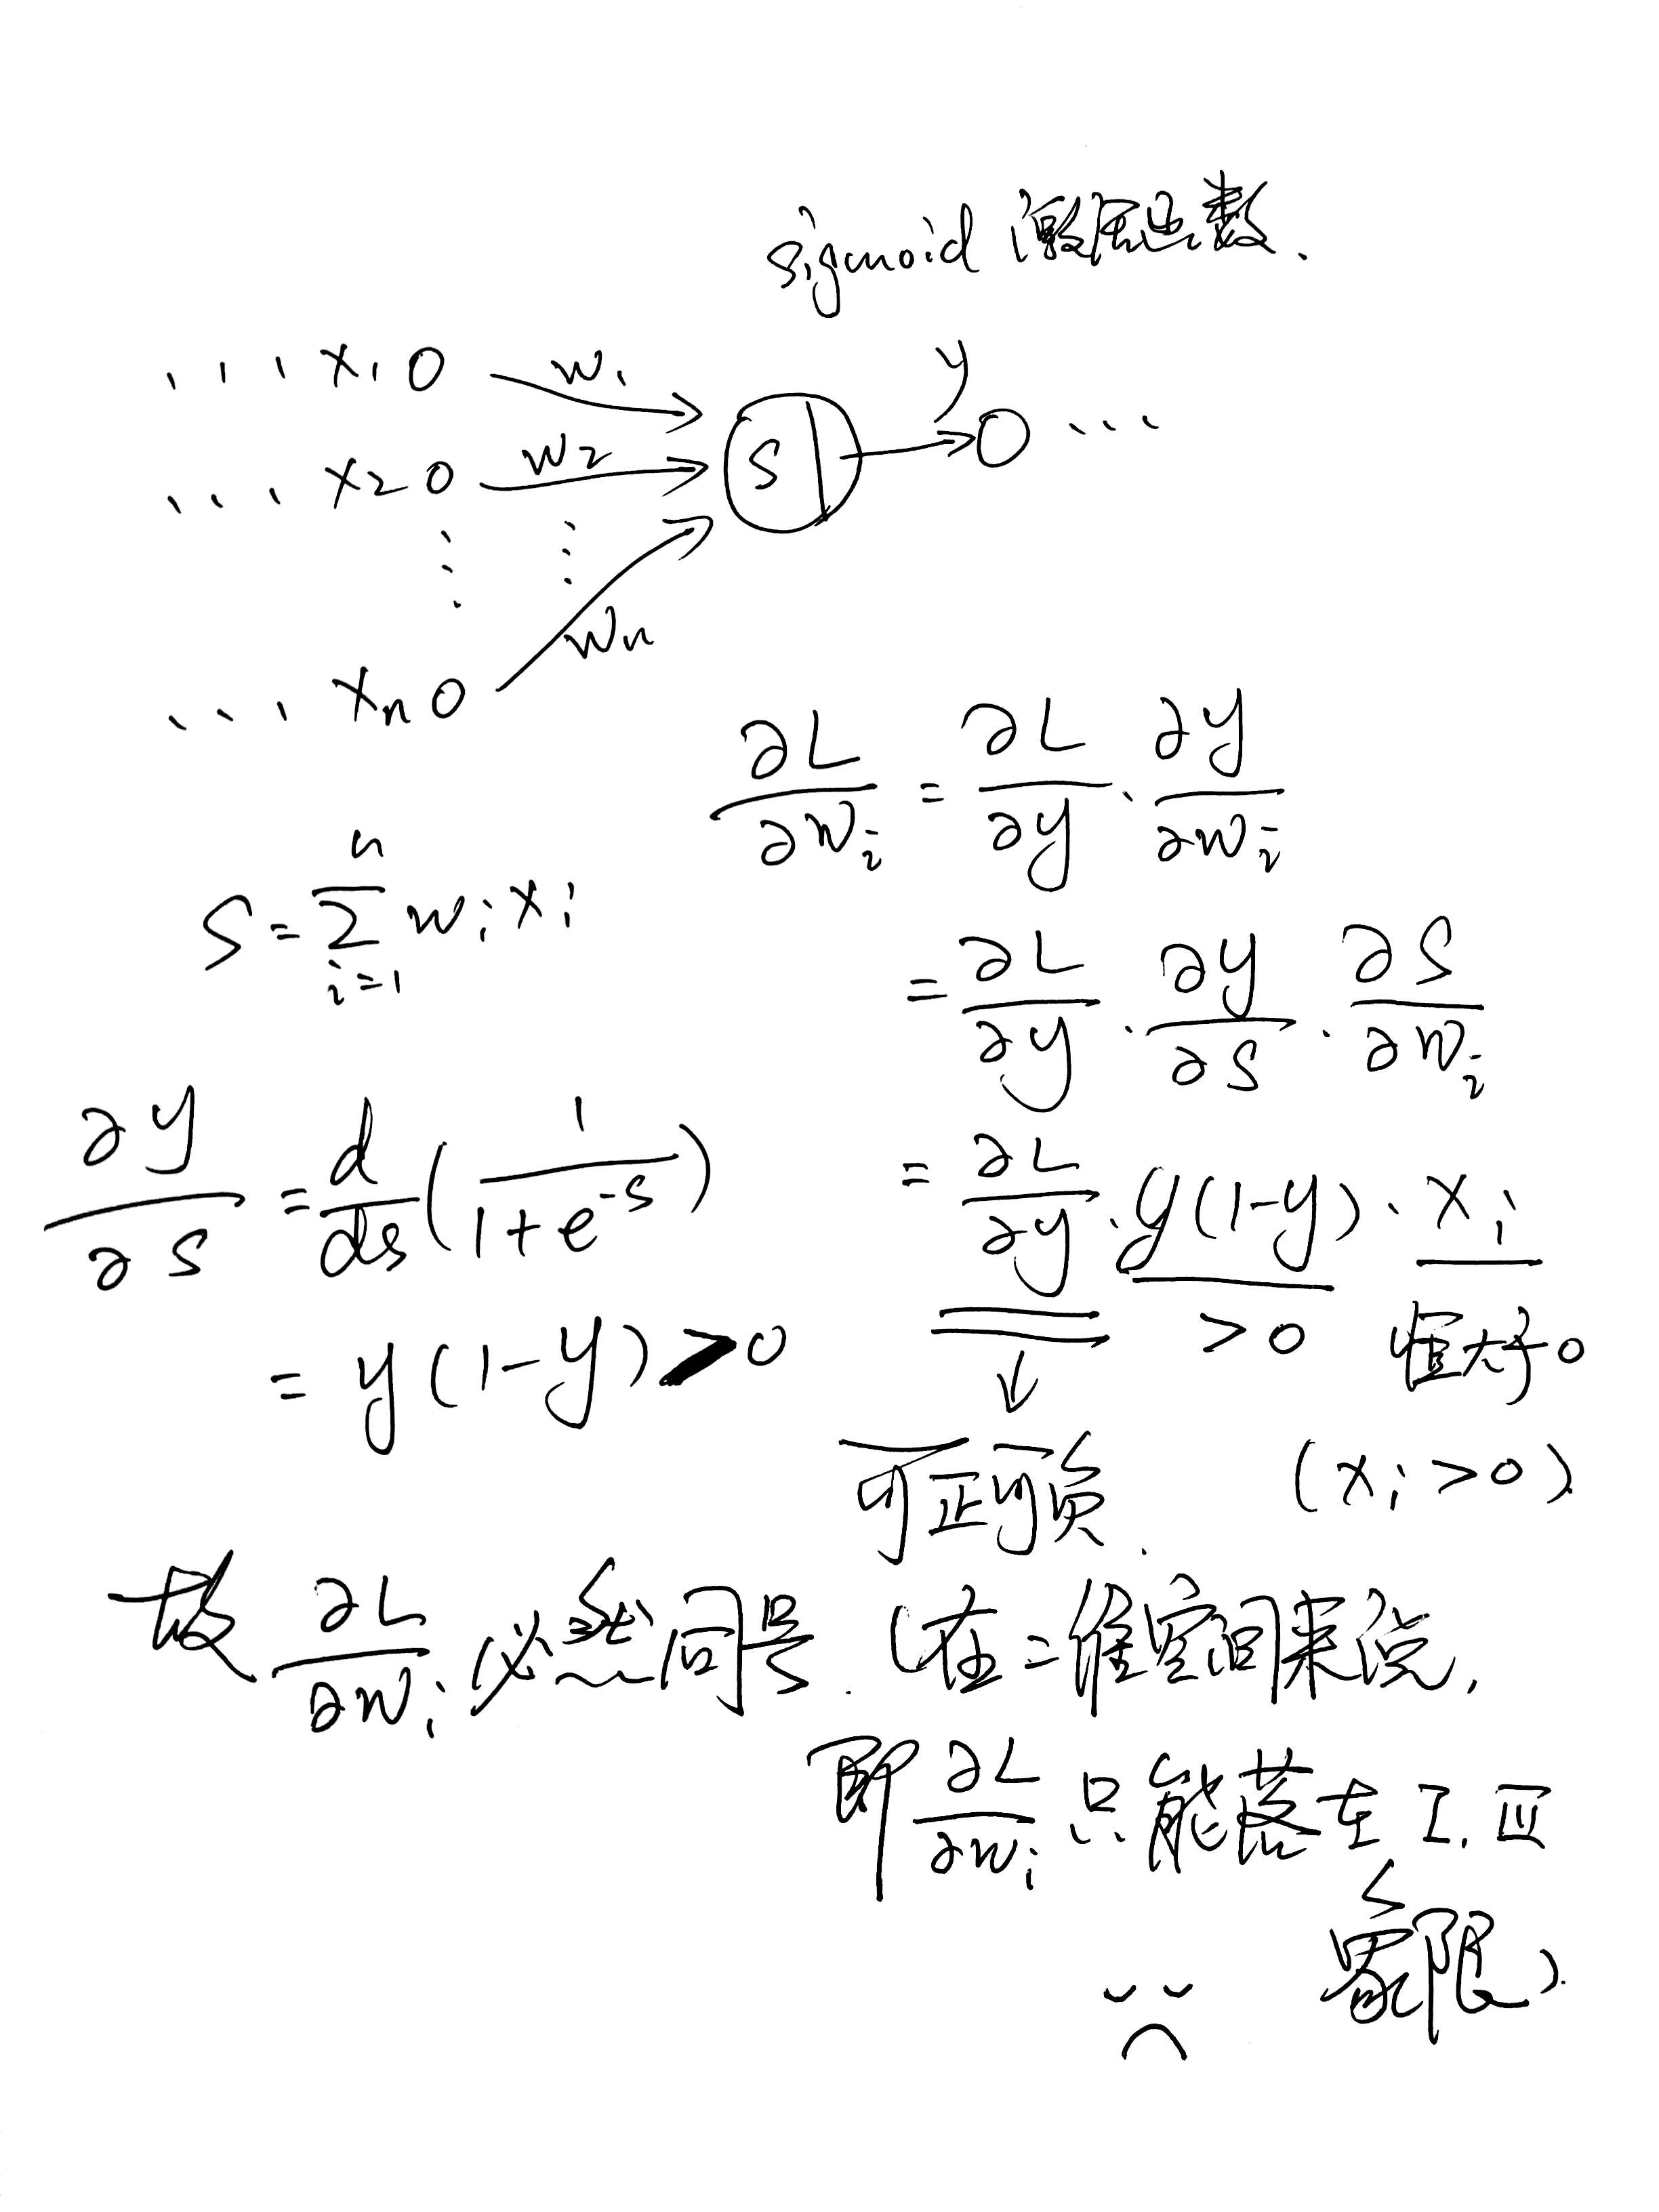 sigmoid 激活函数.
... x₁ O w₁
y
... x₂ O w₂ S O ...
⋮ ⋮
wₙ
... xₙ O
∂L/∂wᵢ = ∂L/∂y · ∂y/∂wᵢ
S = ∑ᵢ₌₁ⁿ wᵢxᵢ
= ∂L/∂y · ∂y/∂S · ∂S/∂wᵢ
∂y/∂S = d/ds (1/(1+e^-s))
= ∂L/∂y · y(1-y) · xᵢ
= y(1-y) > 0
>0 恒大于0
↓
可正可负. (xᵢ>0)
故 ∂L/∂wᵢ 必然同号. (在二维空间来说,
即 ∂L/∂wᵢ 只能落在 I, III
象限).